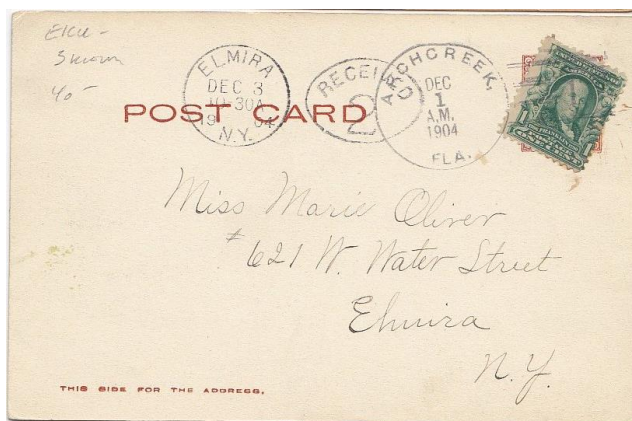 ELMIRA
DEC 3
10-30A
1904
N.Y.
RECEIVED
2
ARCHCREEK,
DEC
1
A.M.
1904
FLA.
POST CARD
1 1
Miss Marie Oliver
# 621 W. Water Street
Elmira
N.Y.
THIS SIDE FOR THE ADDRESS.